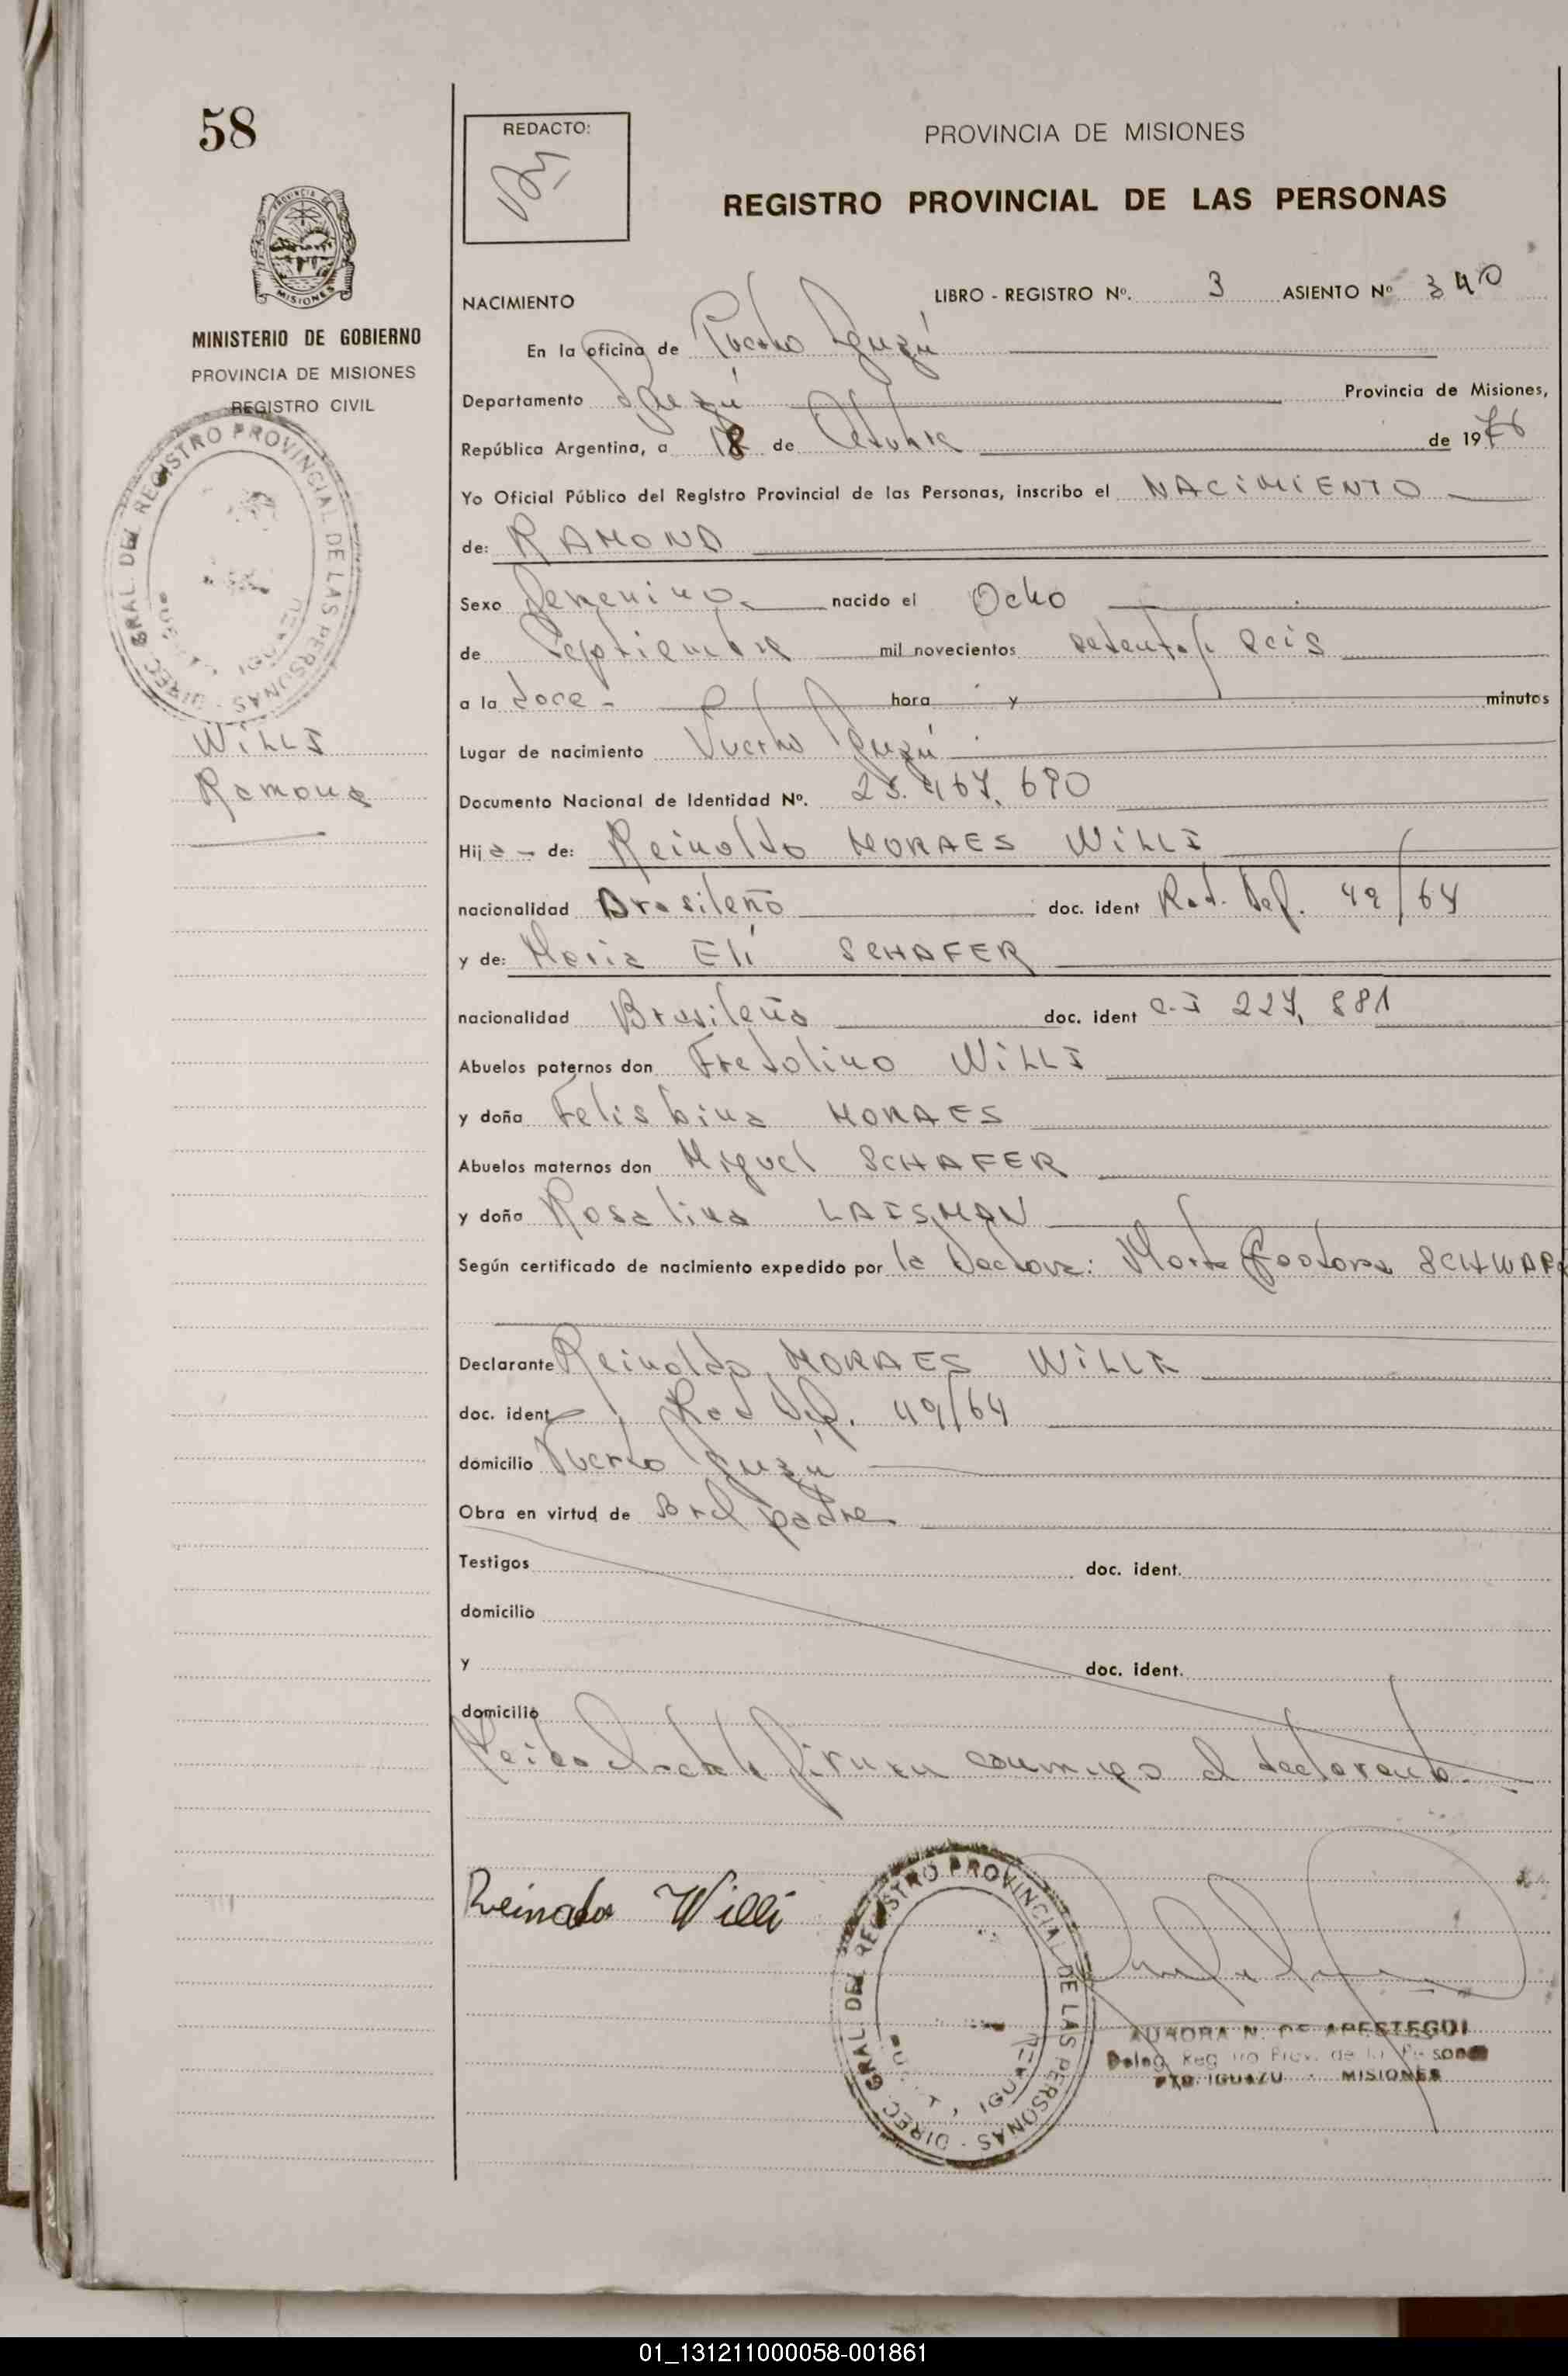 58
REDACTO:
PROVINCIA DE MISIONES
REGISTRO PROVINCIAL DE LAS PERSONAS
MISIONES
MINISTERIO DE GOBIERNO
PROVINCIA DE MISIONES
REGISTRO CIVIL
DIREC. GRAL. DEL REGISTRO PROVINCIAL DE LAS PERSONAS
WiLLI
Ramona
NACIMIENTO LIBRO - REGISTRO Nº. 3 ASIENTO Nº 340
En la oficina de Puerto Iguazú
Departamento Iguazú Provincia de Misiones,
República Argentina, a 18 de Octubre de 1976
Yo Oficial Público del Registro Provincial de las Personas, inscribo el NACIMIENTO
de: RAMONA
Sexo femenino nacido el Ocho
de Septiembre mil novecientos setenta y seis
a la doce hora y minutos
Lugar de nacimiento Puerto Iguazú
Documento Nacional de Identidad Nº. 25.467.690
Hija de: Reinaldo MORAES WiLLI
nacionalidad Brasileño doc. ident Rad. Def. 49/64
y de: Maria Eli SCHAFER
nacionalidad Brasileña doc. ident C.I 227.881
Abuelos paternos don Fredolino WiLLI
y doña Felisbina MORAES
Abuelos maternos don Miguel SCHAFER
y doña Rosalina LAISMAN
Según certificado de nacimiento expedido por la Doctora: Marta SCHWAR
Declarante Reinaldo MORAES WiLLI
doc. ident Rad Def. 49/64
domicilio Puerto Iguazú
Obra en virtud de ser el padre
Testigos doc. ident.
domicilio
y doc. ident.
domicilio
Leida el acta la firman conmigo el declarante.
Reinaldo Willi
DIREC. GRAL. DEL REGISTRO PROVINCIAL DE LAS PERSONAS
AURORA N. DE ARESTEGUI
Deleg. Registro Prov. de las Personas
PTO. IGUAZU - MISIONES
01_131211000058-001861